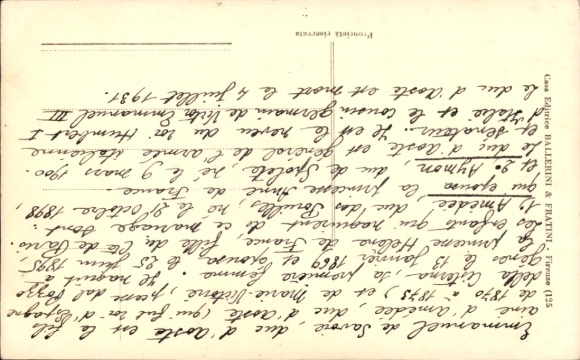 Emmanuel de Savoie, duc d'Aoste est le fils
ainé d'Amédée, duc d'Aoste (qui fut roi d'Espagne
de 1870 à 1873) et de Marie-Victoire, princesse dal Pozzo
della Cisterna, sa première femme. Il naquit à
Gênes le 13 janvier 1869 et épousa le 25 juin 1895,
la princesse Hélène de France, fille du Cte de Paris.
Les enfants qui naquirent de ce mariage sont :
1º, Amédée, duc des Pouilles, né le 2º octobre 1898,
qui épousa la princesse Anne de France.
et 2º Aymon, duc de Spolète, né le 9 mars 1900.
Le duc d'Aoste est général de l'armée italienne
et sénateur. Il est le neveu du roi Humbert I
d'Italie et le cousin germain de Victor Emmanuel III
Le duc d'Aoste est mort le 4 juillet 1931.
Proprietà riservata
Casa Editrice BALLERINI & FRATINI - Firenze (125